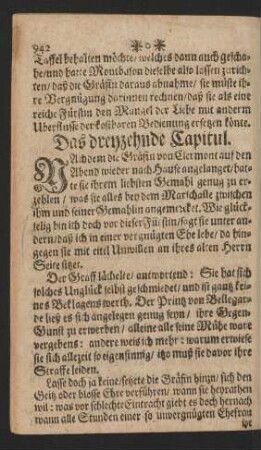 942
Taffel behalten möchte/ welches dann auch gescha-
he/ und hatte Montbason dieselbe also lassen zurich-
ten/ daß die Gräfin daraus abnahme/ sie müste ih-
re Vergnügung darinnen rechnen/ daß sie als eine
reiche Fürstin den Mangel der Liebe mit anderm
Uberflusse der kostbaren Bedienung ersetzen könte.
Das dreyzehnde Capitul.
NAchdem die Gräfin von Clermont auf den
Abend wieder nach Hause angelanget/ hat-
te sie ihrem liebsten Gemahl genug zu er-
zehlen/ was sie alles bey dem Marichalle zwischen
ihm und seiner Gemahlin angemercket. Wie glück-
selig bin ich doch vor dieser Fürstin/ sagt sie unter an-
dern/ daß ich in einer vergnügten Ehe lebe/ da hin-
gegen sie mit eitel Unwillen an ihres alten Herrn
Seite sitzet.
Der Graff lächelte/ antwortend: Sie hat sich
solches Unglück selbst geschmiedet/ und ist gantz kei-
nes Beklagens werth. Der Printz von Bellegar-
de ließ es sich angelegen genug seyn/ ihre Gegen-
Gunst zu erwerben/ alleine alle seine Mühe ware
vergebens: anderweis ich mehr: warum erwiese
sie sich allezeit so eigensinnig/ itzo muß sie davor ihre
Straffe leiden.
Lasse doch ja keine/ setzete die Gräfin hinzu/ sich den
Geitz oder blosse Ehre verführen/ wann sie heyrathen
wil: was vor schlechte Eintracht giebt es doch hernach
wann alle Stunden einer so unvergnügten Ehefrau